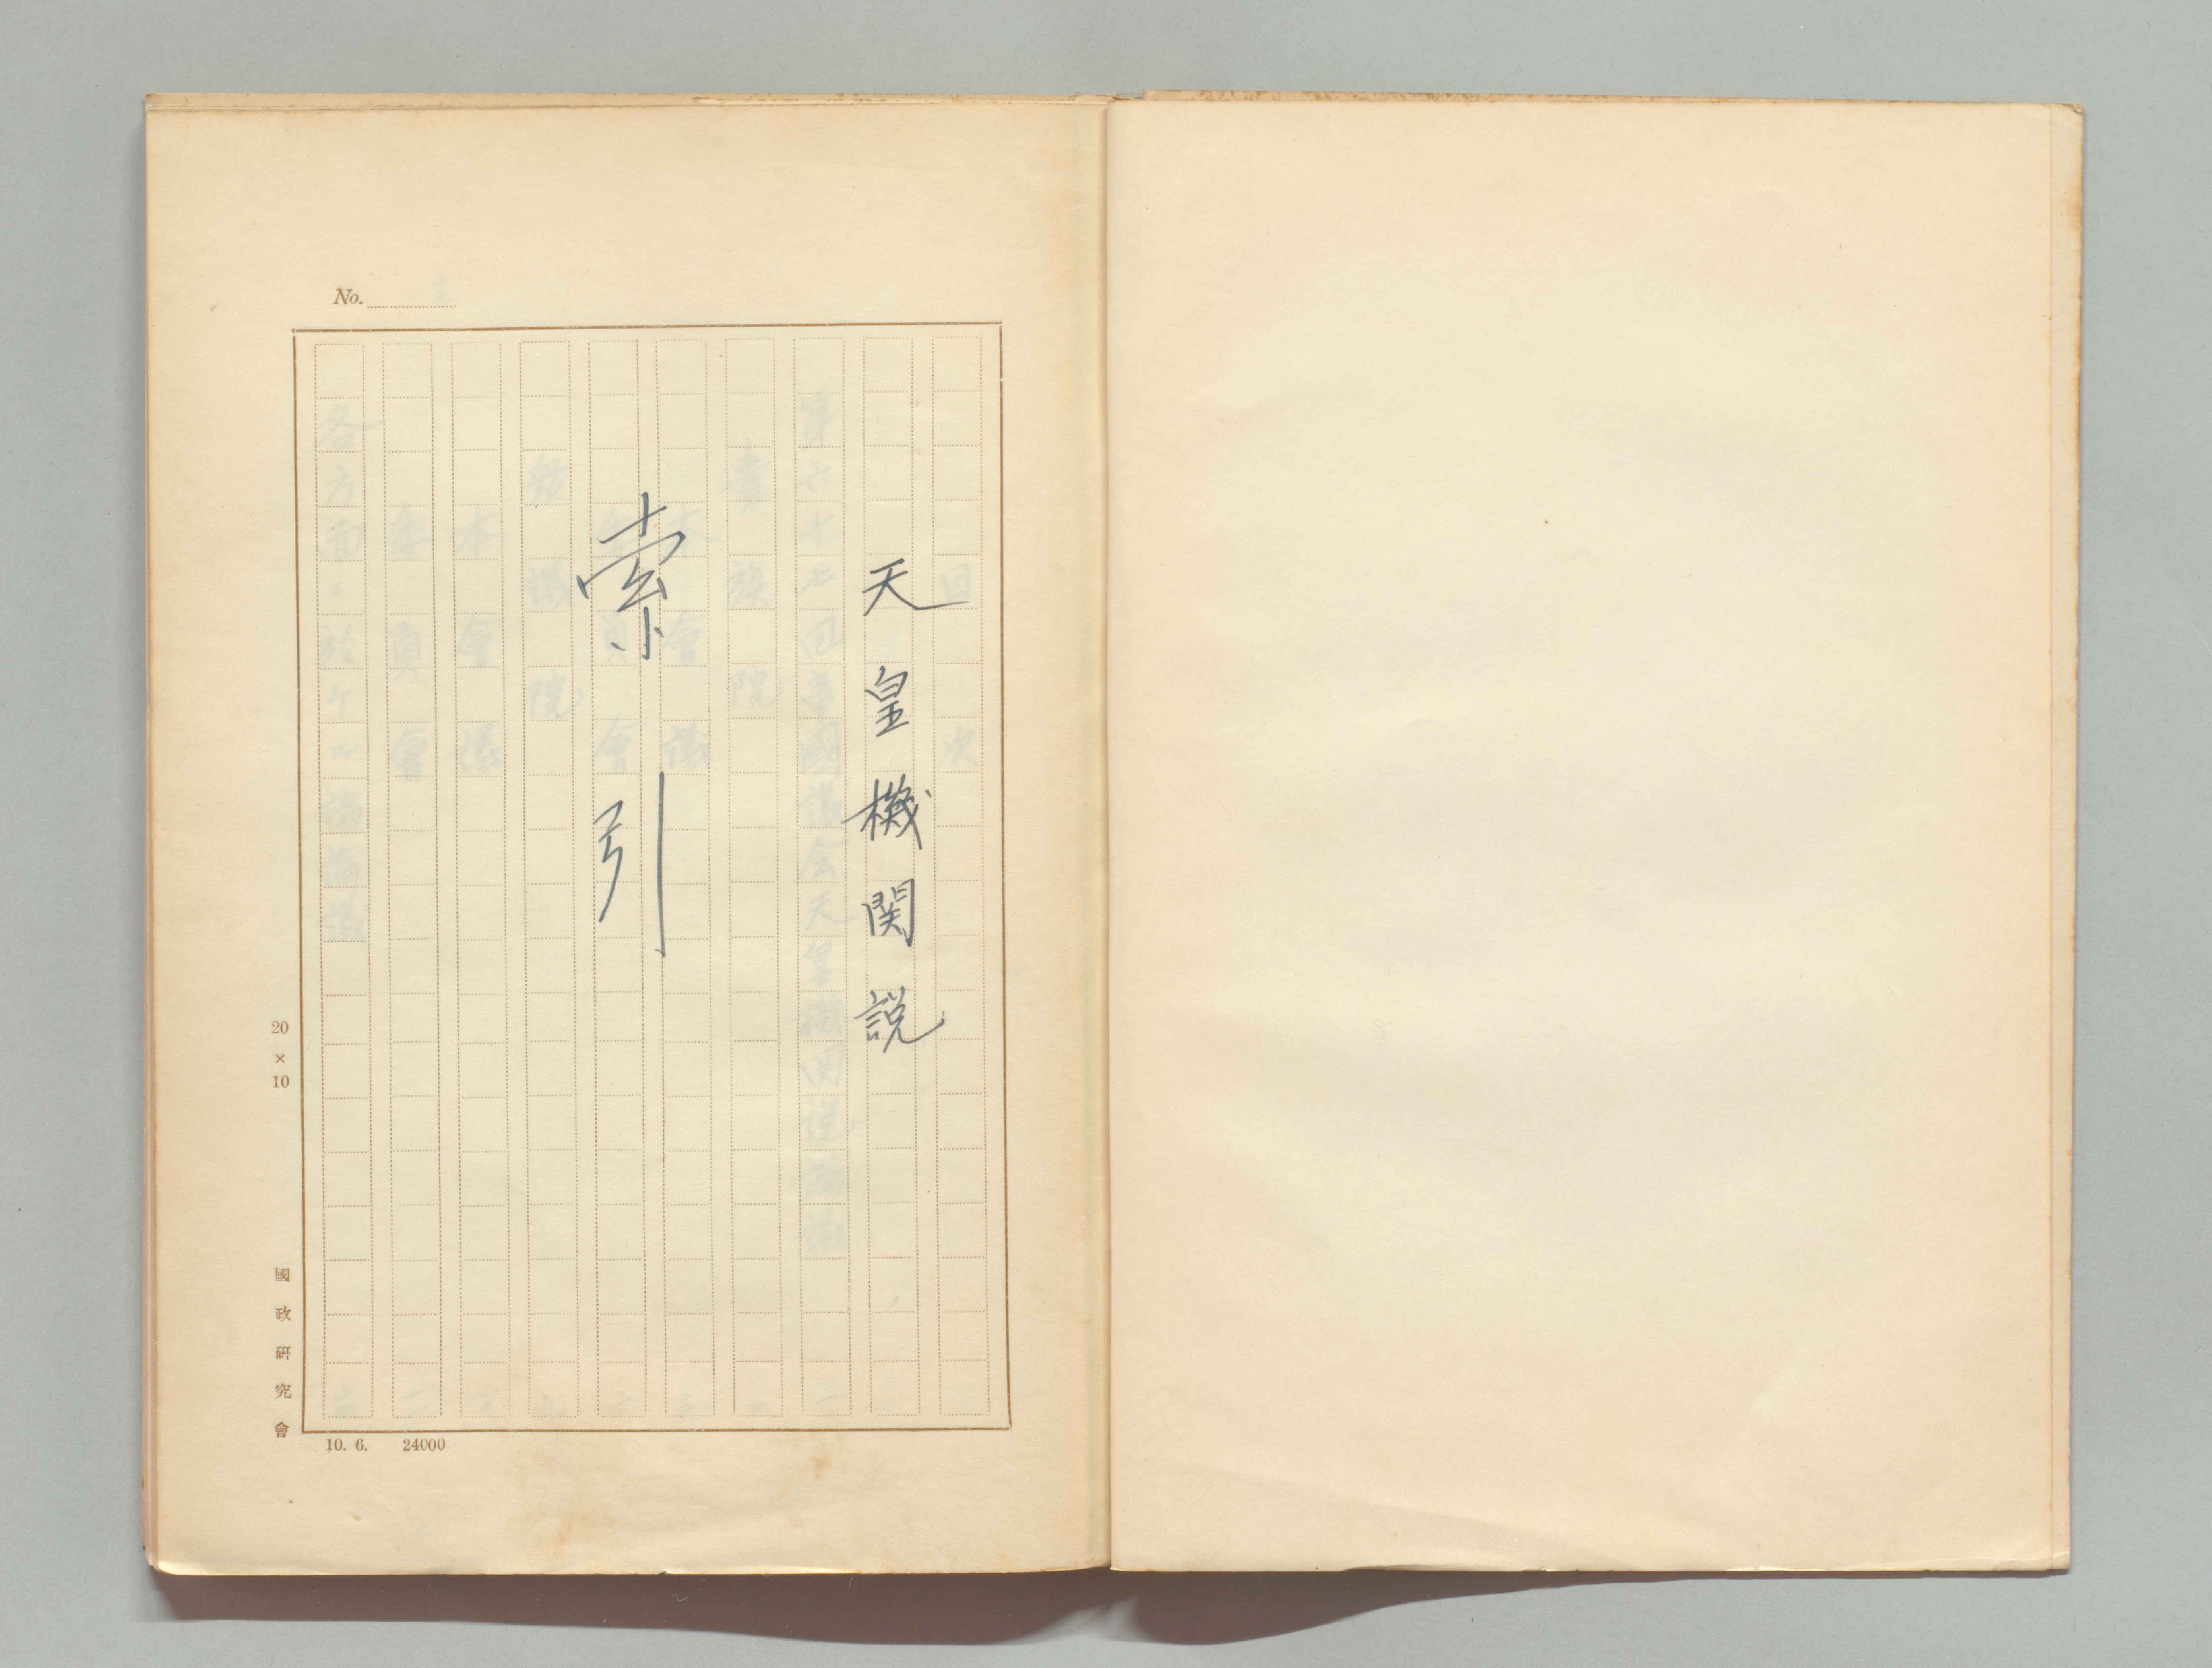 天皇機関説
索引
No.
20×10
國政研究會
10. 6. 24000